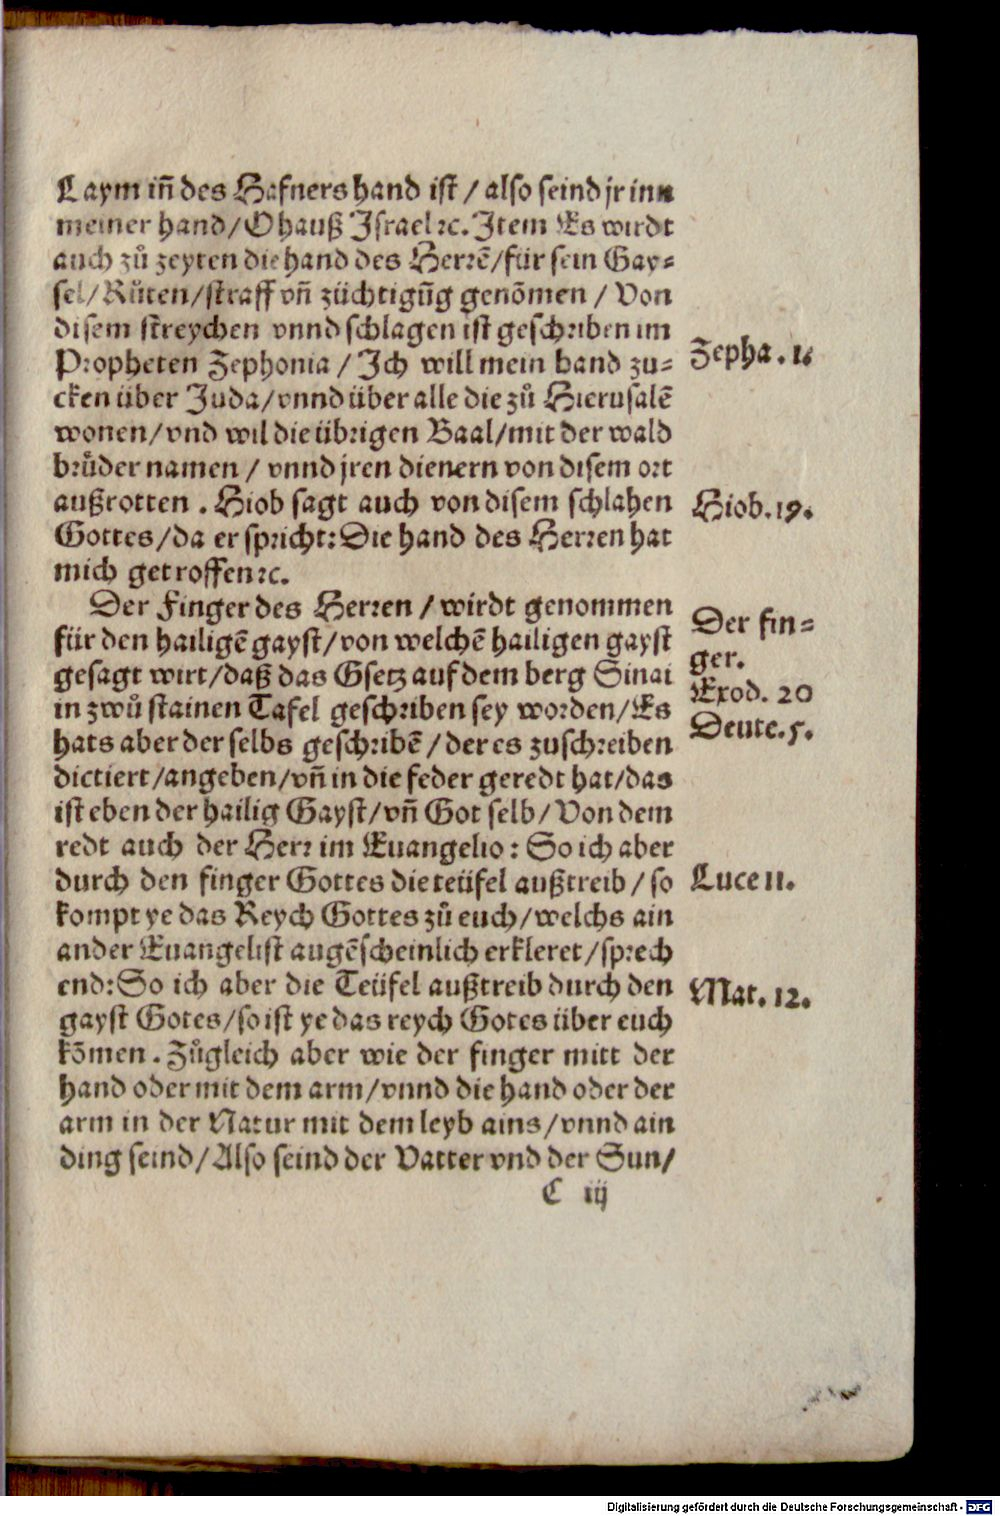 Laym in̄ des Hafners hand ist / also seind jr inn
meiner hand / O hauß Israel ꝛc. Item Es wirdt
auch zů zeyten die hand des Herrē / für sein Gay⸗
sel / Růten / straff vn̄ züchtigūg genōmen / Von
disem streychen vnnd schlagen ist geschriben im
Propheten Zephonia / Ich will mein hand zu⸗
cken über Juda / vnnd über alle die zů Hierusalē
wonen / vnd wil die übrigen Baal / mit der wald
brůder namen / vnnd jren dienern von disem ort
außrotten . Hiob sagt auch von disem schlahen
Gottes / da er spricht: Die hand des Herren hat
mich getroffen ꝛc.
Der Finger des Herren / wirdt genommen
für den hailigē gayst / von welchē hailigen gayst
gesagt wirt / daß das Gsetz auf dem berg Sinai
in zwů stainen Tafel geschriben sey worden / Es
hats aber der selbs geschribē / der es zuschreiben
dictiert / angeben / vn̄ in die feder geredt hat / das
ist eben der hailig Gayst / vn̄ Got selb / Von dem
redt auch der Herr im Euangelio : So ich aber
durch den finger Gottes die teüfel außtreib / so
kompt ye das Reych Gottes zů euch / welchs ain
ander Euangelist augēscheinlich erkleret / sprech
end: So ich aber die Teüfel außtreib durch den
gayst Gotes / so ist ye das reych Gotes über euch
kōmen . Zůgleich aber wie der finger mitt der
hand oder mit dem arm / vnnd die hand oder der
arm in der Natur mit dem leyb ains / vnnd ain
ding seind / Also seind der Vatter vnd der Sun /
C iij
Zepha. 1.
Hiob. 19.
Der fin⸗
ger.
Exod. 20
Deute. 5.
Luce 11.
Mat. 12.
Digitalisierung gefördert durch die Deutsche Forschungsgemeinschaft - DFG